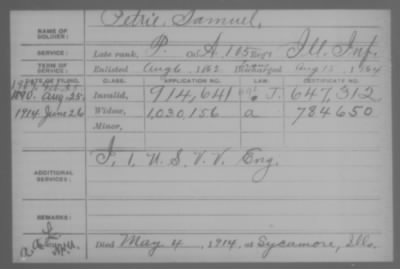 NAME OF SOLDIER: Petrie, Samuel,
SERVICE: Late rank, P. Co. A, 105 Reg't Ill. Inf.
TERM OF SERVICE: Enlisted Aug 6, 1862 Discharged Aug 15, 1864
DATE OF FILING. CLASS. APPLICATION NO. LAW. CERTIFICATE NO.
1890. Aug. 25. Invalid, 914,641 J. 647,312
1914 June 26 Widow, 1,030,156 a 784650
Minor,
ADDITIONAL SERVICES: I, 1 U.S.V.V. Eng.
REMARKS:
Died May 4, 1914, at Sycamore, Ills.